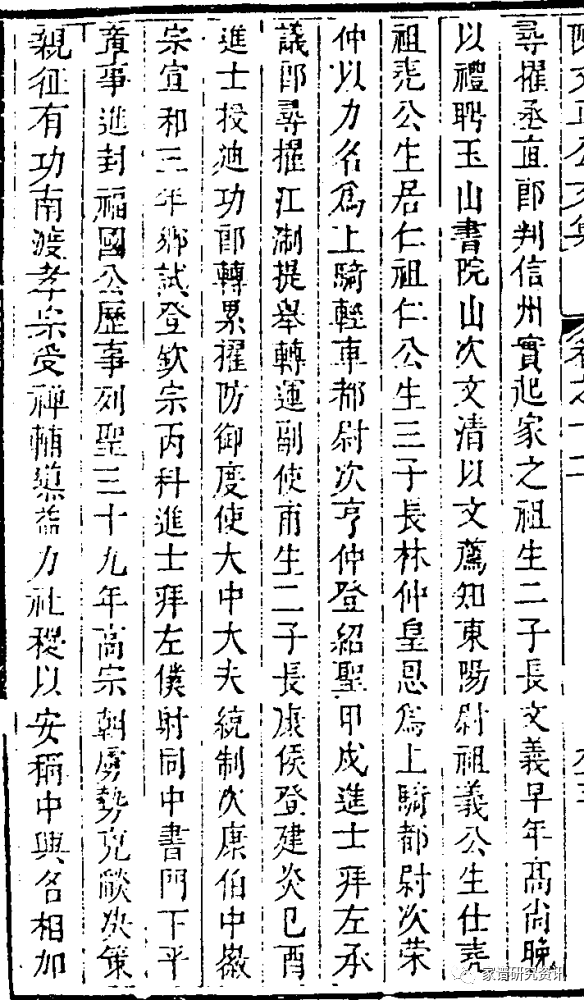 陳文正公文集 卷之十一
尋擢丞直郎判信州實起家之祖生二子長文義早年高尚晚
以禮聘玉山書院山次文清以文薦知東陽尉祖義公生仕堯
祖堯公生居仁祖仁公生三子長林仲皇恩為上騎都尉次榮
仲以力名為上騎輕車都尉次亨仲登紹聖甲戌進士拜左承
議郎尋擢江淛提舉轉運副使甫生二子長康侯登建炎己酉
進士投迪功郎轉累擢防御度使大中大夫統制次康伯中徽
宗宣和三年鄉試登欽宗丙科進士拜左僕射同中書門下平
章事進封福國公歷事列聖三十九年高宗朝虜勢克燄決策
親征有功南渡孝宗受禪輔㡣益力社稷以安稱中興名相加
家谱研究资讯